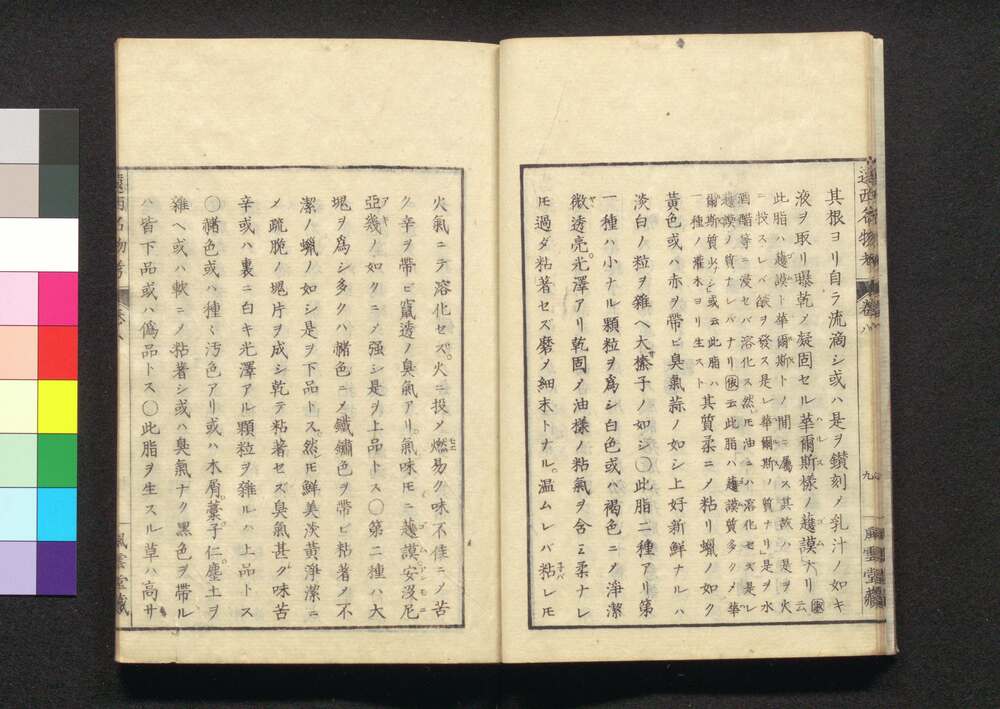 遠西名物考 卷八 九 風雲堂藏
其根ヨリ自ラ流滴シ或ハ是ヲ鑚刻メ乳汁ノ如キ
液ヲ取リ曝乾メ凝固セル華爾斯様ノ護謨ナリ
此脂ハ護謨ト華爾斯トノ間ニ屬ス其故ハ是ヲ火
ニ投スレバ焔ヲ發ス是レ華爾斯ノ質ナリ是ヲ水
酒醋等ニ浸セバ溶化ス然ルモ油ニハ溶化セズ是レ
護謨ノ質ナレバナリ 云此脂ハ護謨質多ク華
爾斯質少シト或云此脂ハ
一種ノ灌木ヨリ生スト
其質柔ニメ粘リ蠟ノ如ク
黄色或ハ赤ヲ帶ビ臭氣蒜ノ如シ上好新鮮ナルハ
淡白ノ粒ヲ雜ヘ大榛子ノ如シ〇此脂二種アリ第
一種ハ小ナル顆粒ヲ爲シ白色或ハ褐色ニメ淨潔
微透亮光澤アリ乾固メ油様ノ粘氣ヲ含ミ柔ナレ
モ過ダ粘著セズ磨メ細末トナル。温ムレバ粘レモ
火氣ニテ溶化セズ。火ニ投メ燃易ク味不佳ニメ苦
ク辛ヲ帶ビ竄透ノ臭氣アリ。氣味モニ護謨安没尼
亞幾ノ如クニメ强シ是ヲ上品トス〇第二種ハ大
塊ヲ爲シ多クハ赭色ニメ鐵鏽色ヲ帶ビ粘著メ不
潔ノ蠟ノ如シ是ヲ下品トス然モ鮮美淡黄淨潔ニ
メ疏脆ノ塊片ヲ成シ乾テ粘著セズ臭氣甚ク味苦
辛或ハ裏ニ白キ光澤アル顆粒ヲ雜ルハ上品トス
〇赭色或ハ種々汚色アリ或ハ木屑。藁。子仁。塵土ヲ
雜ヘ或ハ軟ニメ粘著シ或ハ臭氣ナク黒色ヲ帶ル
ハ皆下品或ハ僞品トス〇此脂ヲ生スル草ハ高サ
遠西名物考 卷八 風雲堂藏